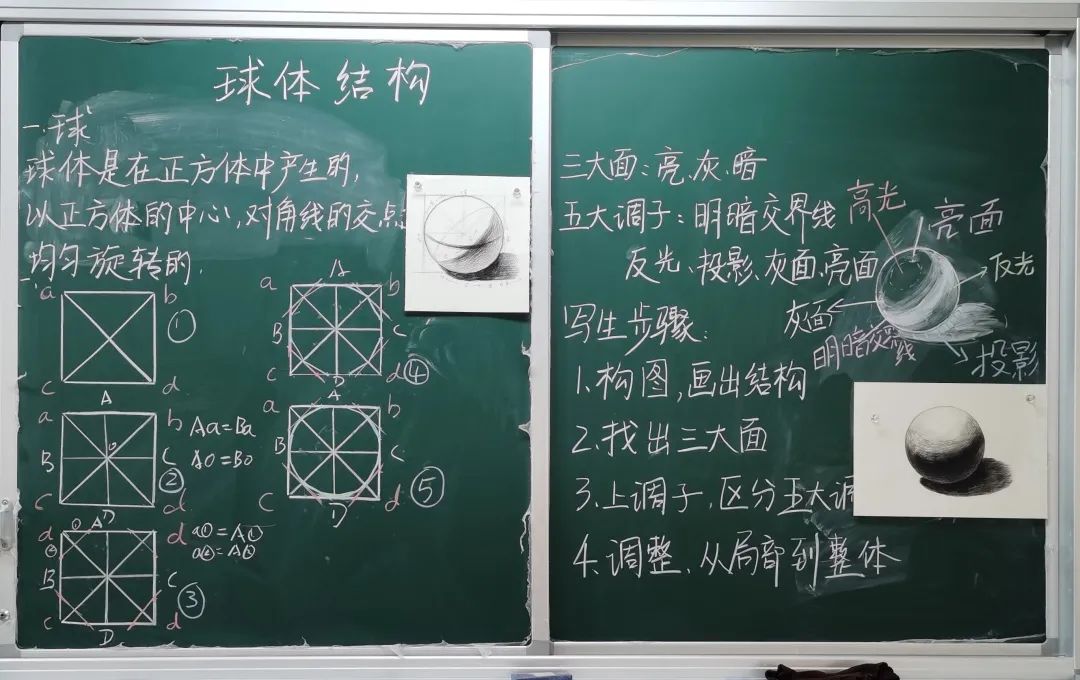 球体结构
一.球
球体是在正方体中产生的,
以正方体的中心,对角线的交点
均匀旋转的.
a b
①
c d
A
a b
B C
②
c d
D
Aa=Ba
AO=BO
A
B C
③
c d
D
a①=A①
a②=A②
A
a b
B C
c d
④
D
A
a b
B C
c d
⑤
D
三大面:亮、灰、暗
五大调子:明暗交界线
反光、投影、灰面、亮面
写生步骤:
1.构图,画出结构
2.找出三大面
3.上调子,区分五大调
4.调整,从局部到整体
高光
亮面
反光
灰面
明暗交界线
投影